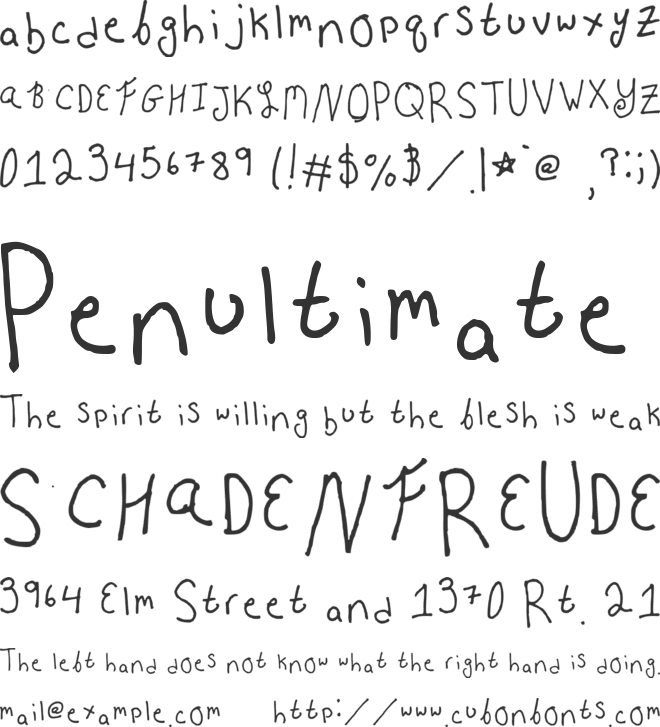 abcdefghijklmnopqrstuvwxyz
ABCDEFGHIJKLMNOPQRSTUVWXYZ
0123456789 (!#$%$/.|*`@ ,?:;)
Penultimate
The spirit is willing but the flesh is weak
SCHADENFREUDE
3964 Elm Street and 1370 Rt. 21
The left hand does not know what the right hand is doing.
mail@example.com http://www.cufonfonts.com